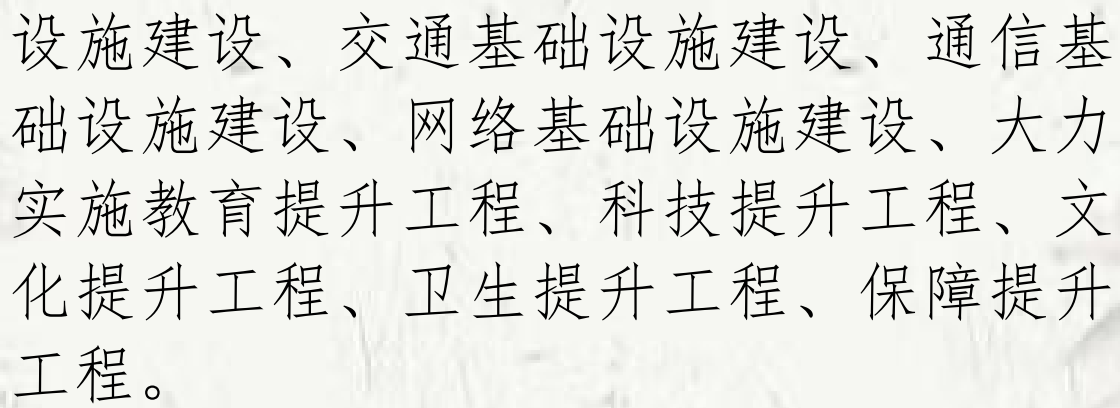 设施建设、交通基础设施建设、通信基
础设施建设、网络基础设施建设、大力
实施教育提升工程、科技提升工程、文
化提升工程、卫生提升工程、保障提升
工程。